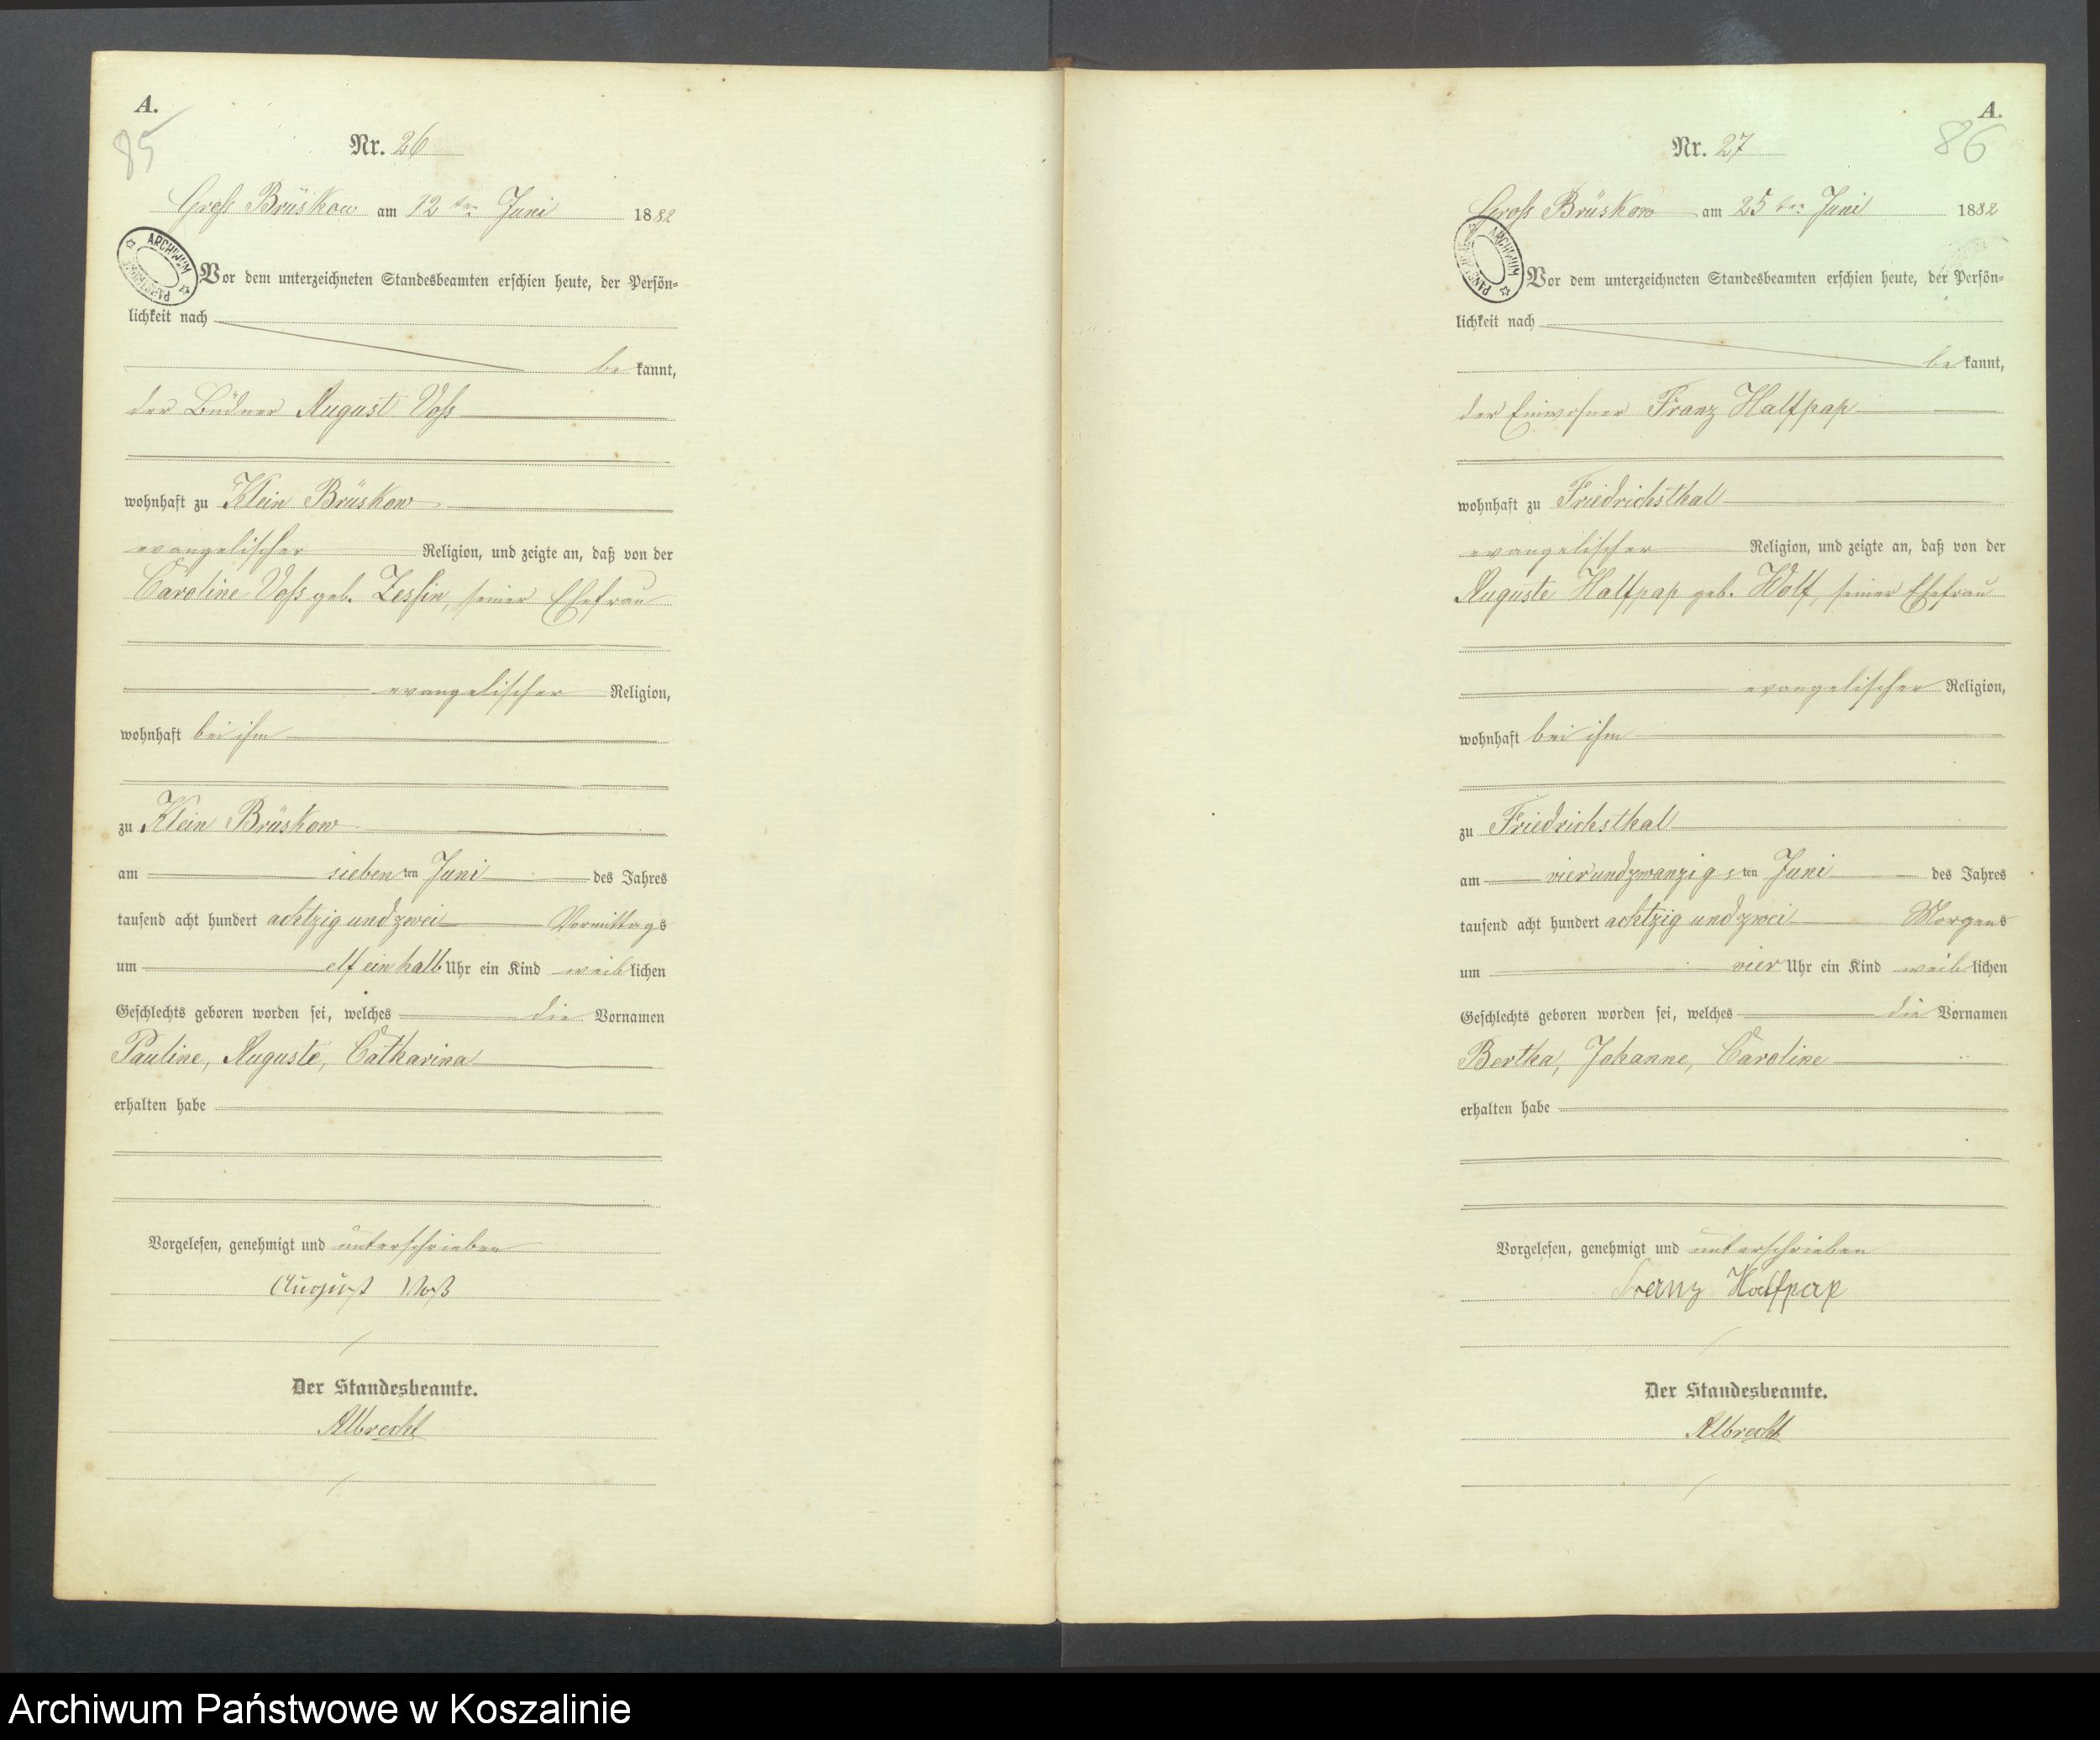 A.
85
Nr. 26
Gross Brüskow am 12ten Juni 1882
ARCHIWUM PAŃSTWOWE
Vor dem unterzeichneten Standesbeamten erschien heute, der Persön-
lichkeit nach
be kannt,
der Büdner August Voss
wohnhaft zu Klein Brüskow
evangelischer Religion, und zeigte an, daß von der
Caroline Voss geb. Zessin, seiner Ehefrau
evangelischer Religion,
wohnhaft bei ihm
zu Klein Brüskow
am siebenten Juni des Jahres
tausend acht hundert achtzig und zwei Vormittags
um elf ein halb Uhr ein Kind weiblichen
Geschlechts geboren worden sei, welches die Vornamen
Pauline, Auguste, Catharina
erhalten habe
Vorgelesen, genehmigt und unterschrieben
August Voß
Der Standesbeamte.
Albrecht
A.
86
Nr. 27
Gross Brüskow am 25ten Juni 1882
ARCHIWUM PAŃSTWOWE
Vor dem unterzeichneten Standesbeamten erschien heute, der Persön-
lichkeit nach
be kannt,
der Einwohner Franz Halfpap
wohnhaft zu Friedrichsthal
evangelischer Religion, und zeigte an, daß von der
Auguste Halfpap geb. Wolf, seiner Ehefrau
evangelischer Religion,
wohnhaft bei ihm
zu Friedrichsthal
am vierundzwanzigsten Juni des Jahres
tausend acht hundert achtzig und zwei Morgens
um vier Uhr ein Kind weiblichen
Geschlechts geboren worden sei, welches die Vornamen
Bertha, Johanne, Caroline
erhalten habe
Vorgelesen, genehmigt und unterschrieben
Franz Halfpap
Der Standesbeamte.
Albrecht
Archiwum Państwowe w Koszalinie